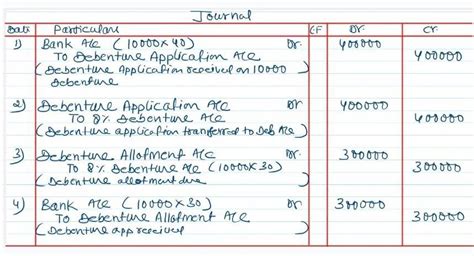 Journal
Date Particulars LF Dr. Cr.
1) Bank A/c (10000×40) Dr. 400000
To Debenture Application A/c 400000
(Debenture Application received on 10000
Debenture
2) Debenture Application A/c Dr 400000
To 8% Debenture A/c 400000
(Debenture application transferred to Deb A/c)
3) Debenture Allotment A/c Dr. 300000
To 8% Debenture A/c (10000×30) 300000
(Debenture allotment due
4) Bank A/c (10000×30) Dr 300000
To Debenture Allotment A/c 300000
(Debenture app received